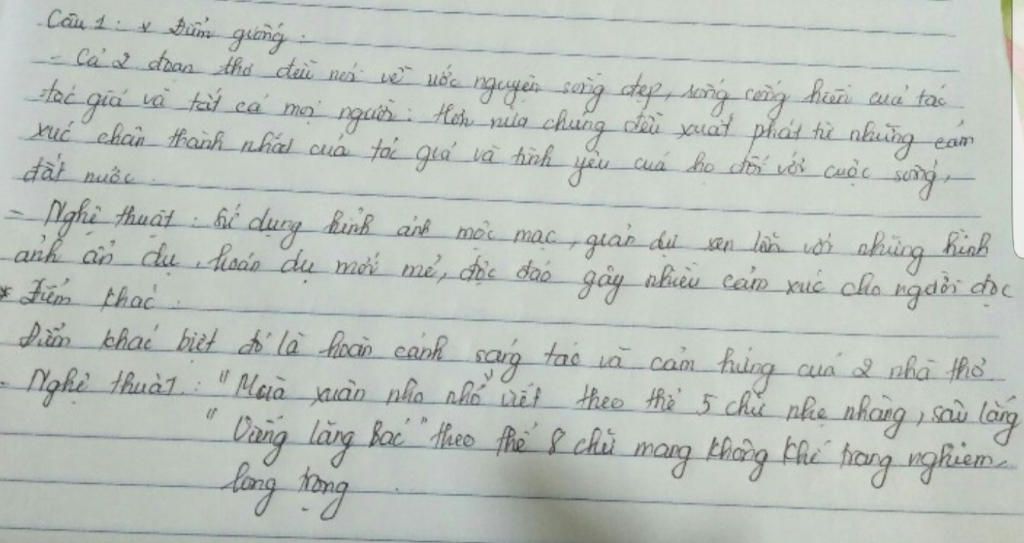 Câu 1: * Điểm giống.
- Cả 2 đoạn thơ đều nói về ước nguyện sống đẹp, sống cống hiến của tác
tác giả và tất cả mọi người: Hơn nữa chúng đều xuất phát từ những cảm
xúc chân thành nhất của tác giả và tình yêu của họ đối với cuộc sống,
đất nước.
- Nghệ thuật: Sử dụng hình ảnh mộc mạc, giản dị xen lẫn với những hình
ảnh ẩn dụ, hoán dụ mới mẻ, độc đáo gây nhiều cảm xúc cho người đọc
* Điểm khác.
Điểm khác biệt đó là hoàn cảnh sáng tác và cảm hứng của 2 nhà thơ
- Nghệ thuật: "Mùa xuân nho nhỏ" viết theo thể 5 chữ nhẹ nhàng, sâu lắng
"Viếng lăng Bác" theo thể 8 chữ mang không khí trang nghiêm,
long trọng